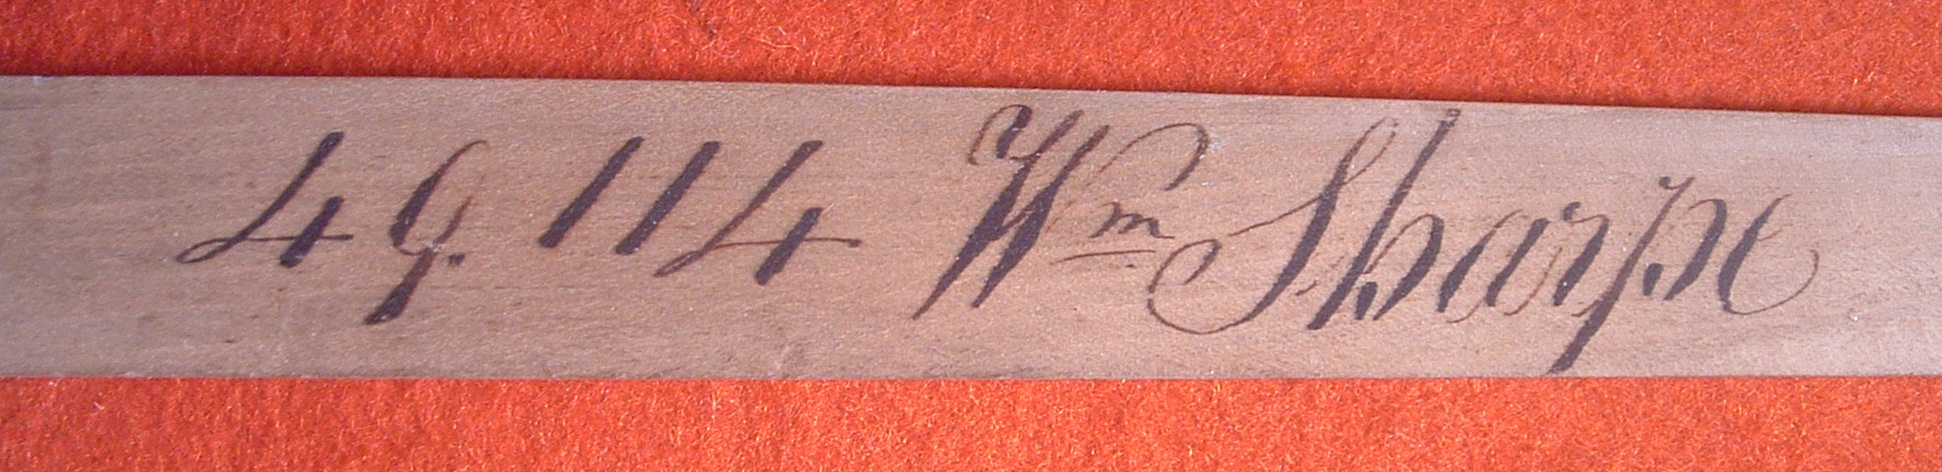 49.114 Wm Sharpe